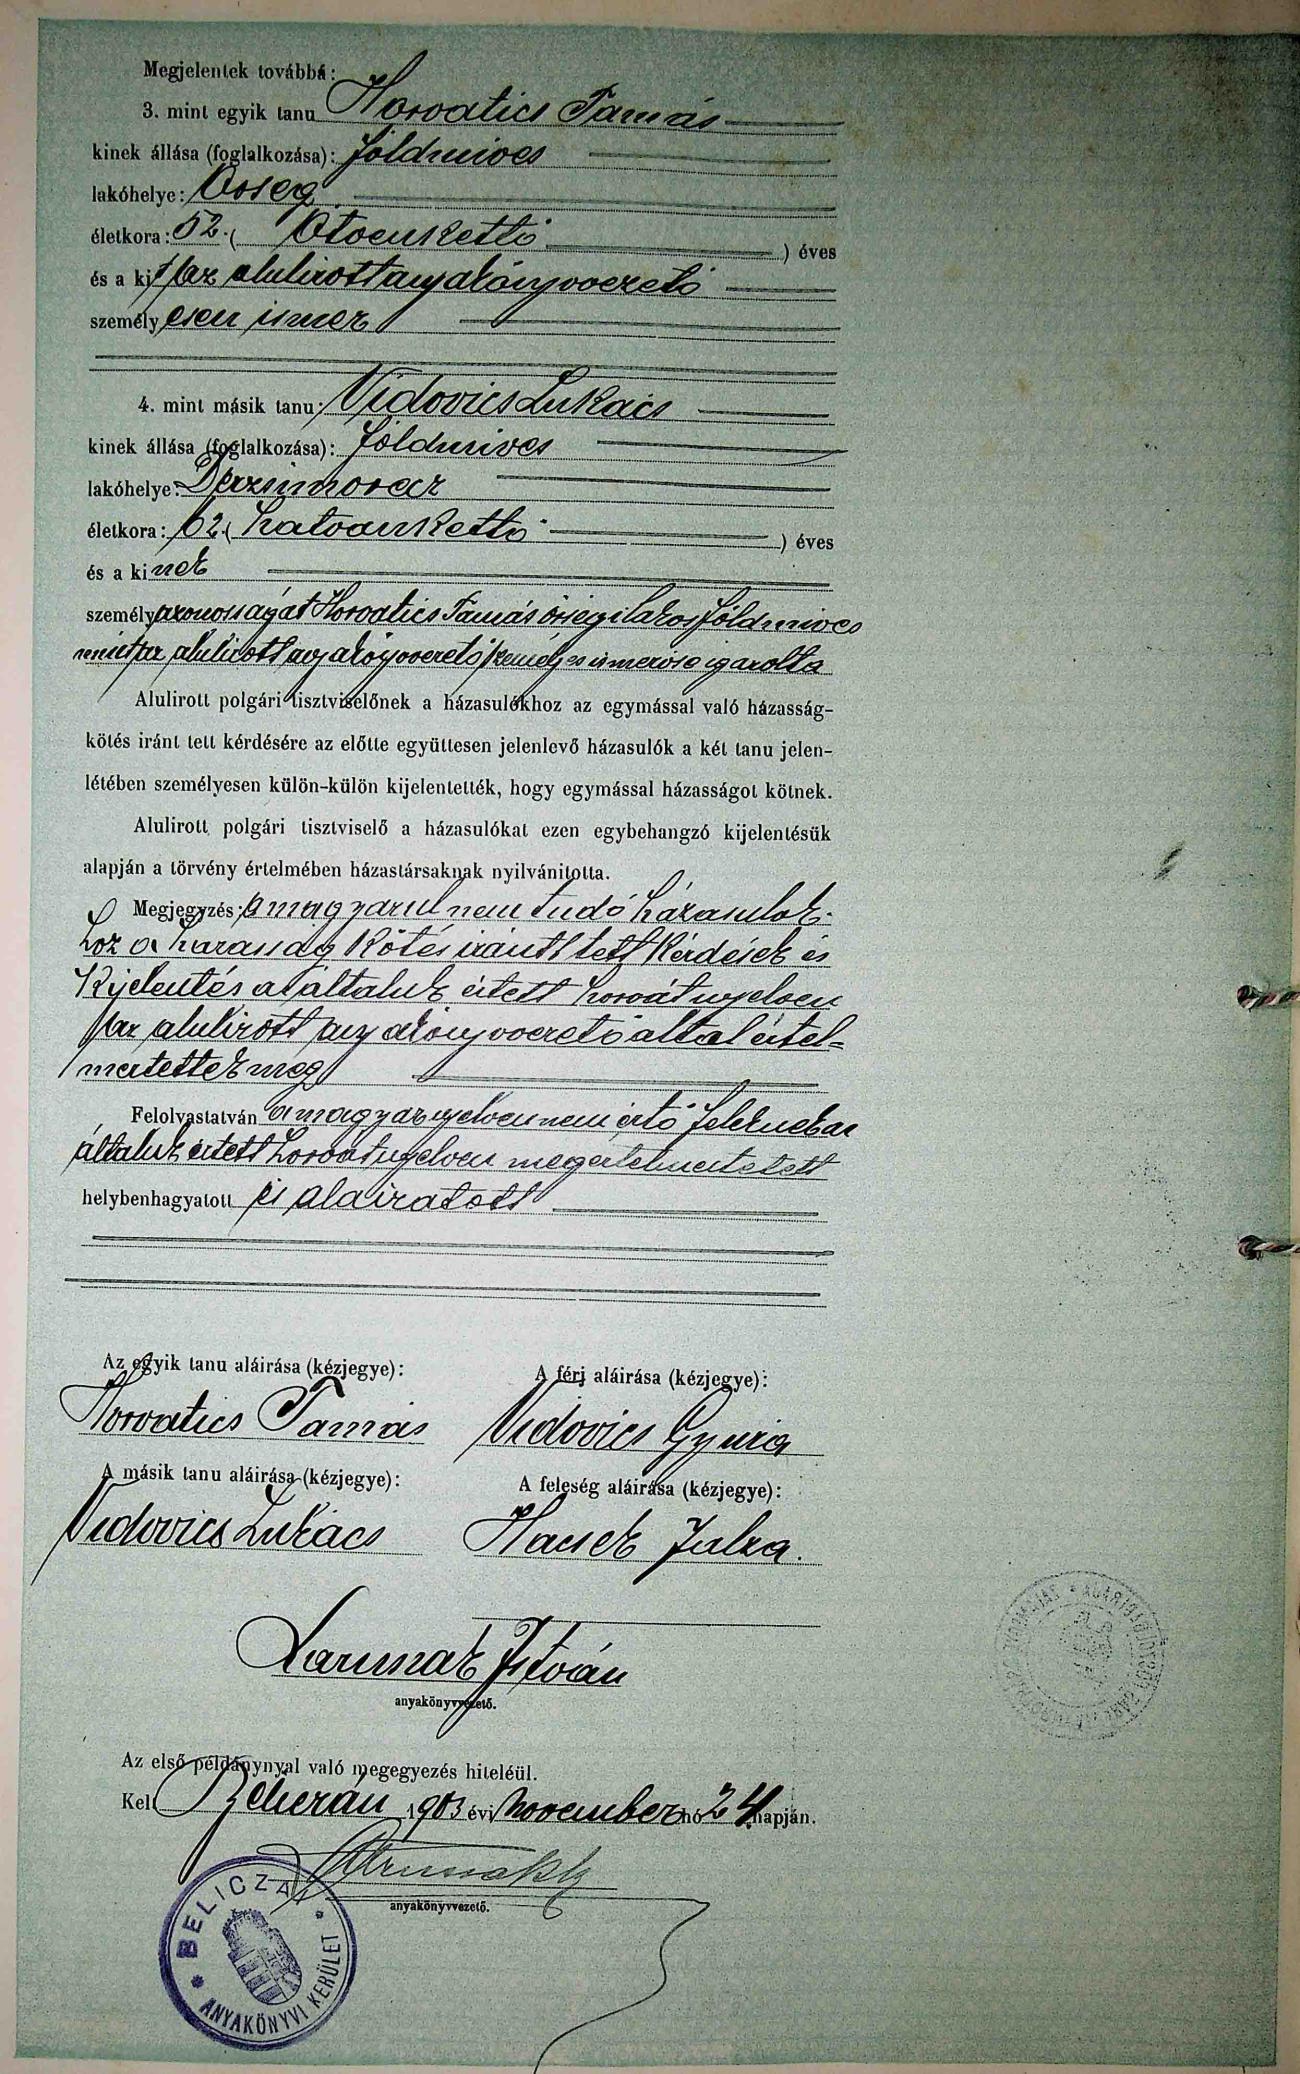 Megjelentek továbbá:
3. mint egyik tanu Horvatics Tamás
kinek állása (foglalkozása): földmives
lakóhelye: Őrség
életkora: 52. ( Ötvenkettő ) éves
és a kit az alulirott anyakönyvvezető
személyesen ismer
4. mint másik tanu: Vidovics Lukács
kinek állása (foglalkozása): földmives
lakóhelye:
életkora: 62. ( hatvankettő ) éves
és a kinek
személyazonosságát Horvatics Tamás őrségi lakos földmives
mint az alulirott anyakönyvvezető személyes ismerőse igazolta
Alulirott polgári tisztviselőnek a házasulókhoz az egymással való házasság-
kötés iránt tett kérdésére az előtte együttesen jelenlevő házasulók a két tanu jelen-
létében személyesen külön-külön kijelentették, hogy egymással házasságot kötnek.
Alulirott polgári tisztviselő a házasulókat ezen egybehangzó kijelentésük
alapján a törvény értelmében házastársaknak nyilvánitotta.
Megjegyzés: a magyarul nem tudó házasulok-
hoz a házasság kötés iránt tett kérdések és
kijelentés az általuk értett horvát nyelven
az alulirott anyakönyvvezető által értel-
meztettek meg
Felolvastatván a magyar nyelven nem értő feleknek az
általuk értett horvát nyelven megértelmeztetett
helybenhagyatott és aláiratott
Az egyik tanu aláirása (kézjegye):
A férj aláirása (kézjegye):
Horvatics Tamás
Vidovics Gyuria
A másik tanu aláirása (kézjegye):
A feleség aláirása (kézjegye):
Vidovics Lukács
Hacsek Jalza.
István
anyakönyvvezető.
Az első példánynyal való megegyezés hiteléül.
Kelt 1903 évi november hó 24 napján.
anyakönyvvezető.
BELICZA
ANYAKÖNYVI KERÜLET